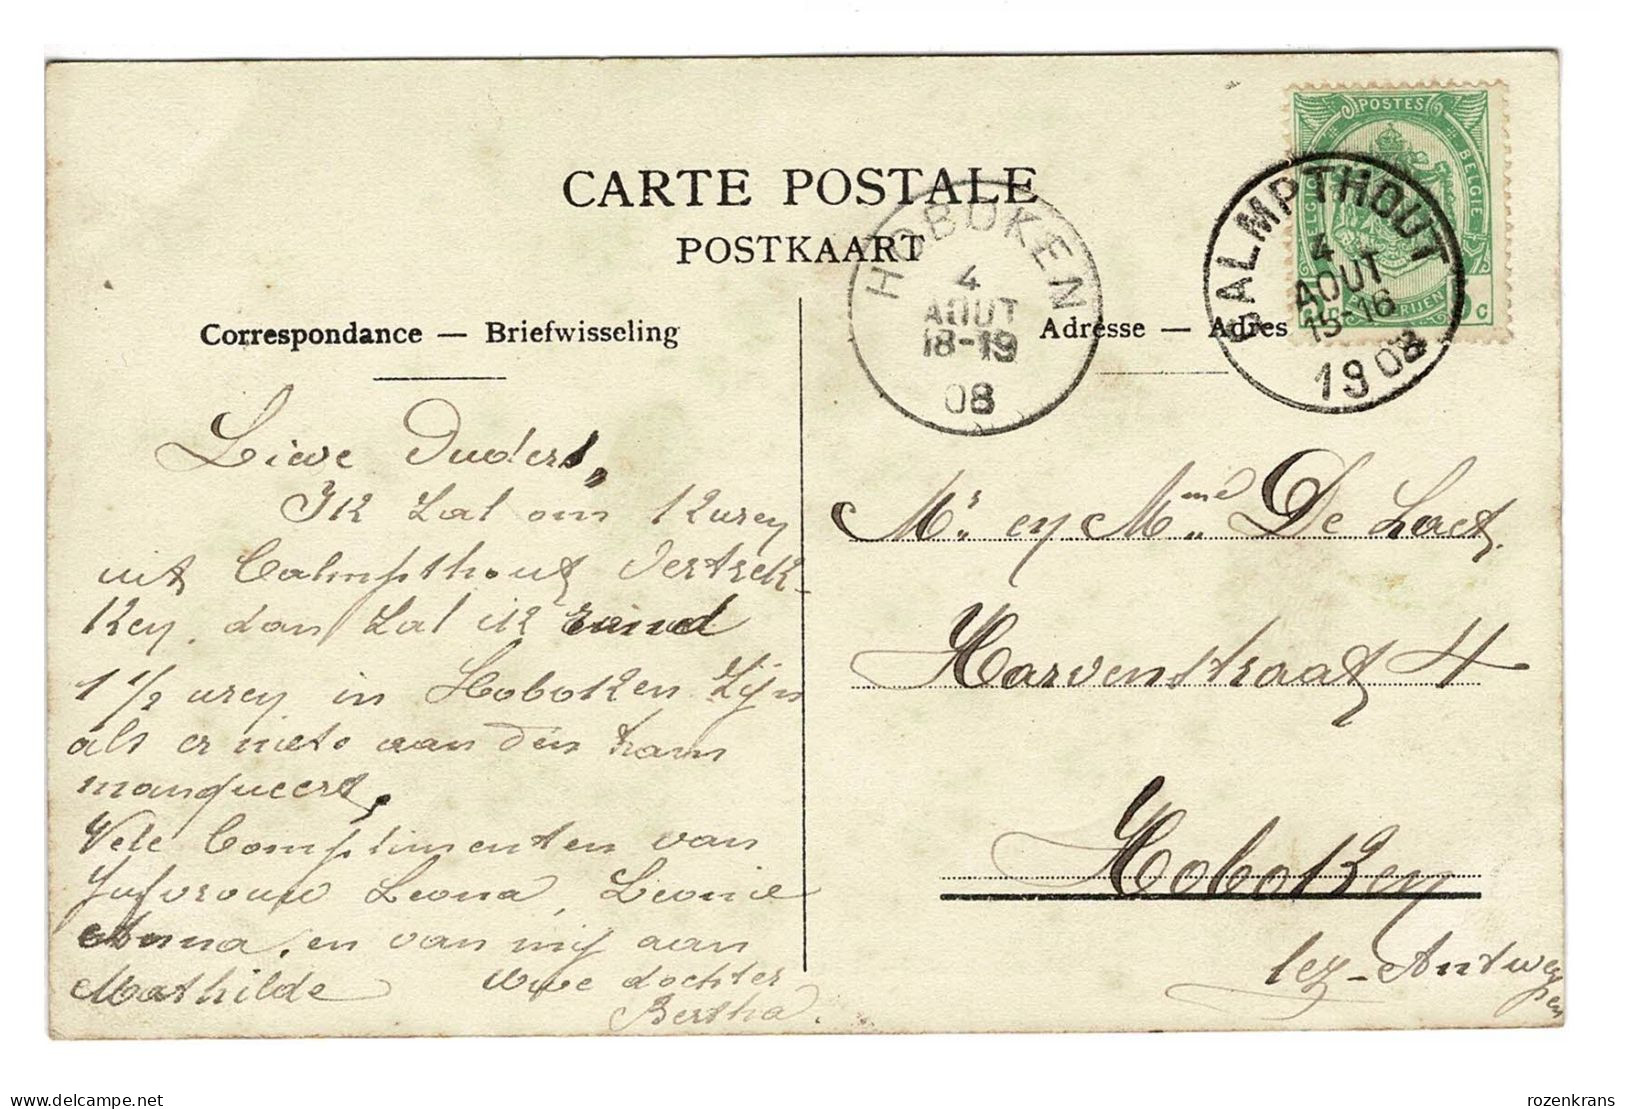 CARTE POSTALE
POSTKAART
Correspondance — Briefwisseling
Adresse — Adres
POSTES
BELGIE
HOBOKEN
4
AOUT
18-19
08
CALMPTHOUT
4
AOUT
15-16
1908
Lieve Ouders,
Ik zal om
uit Calmpthout vertrek-
ken, dan zal ik
1 1/2 urey in Hoboken zijn
als er niets aan den tram
manqueert,
Vele Complimenten van
Jufvrouw Leona, Leonie
Anna, en van mij aan
Mathilde Uwe dochter
Bertha.
Mr. ey Mme De Laet
Harvenstraat 4
Hobokey
lez-Antwerpen
delcampe.net
rozenkrans